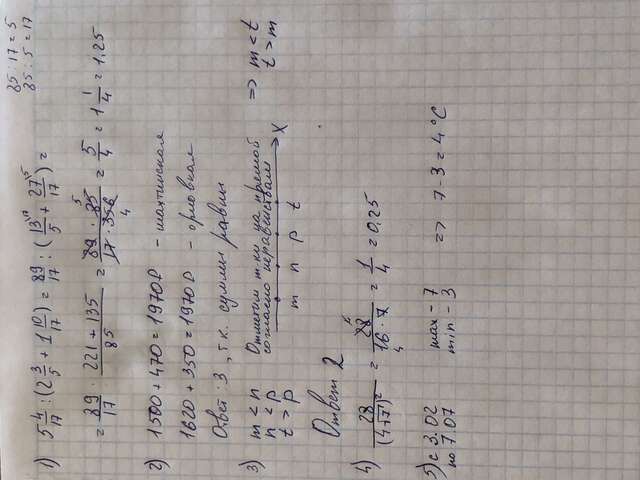 85 : 17 = 5
85 : 5 = 17
1) 5 4/17 : (2 3/5 + 1 10/17) = 89/17 : (13/5 \17 + 27/17 \5) =
= 89/17 : (221 + 135)/85 = (89 · 85)/(17 · 356) = 5/4 = 1 1/4 = 1.25
2) 1500 + 470 = 1970₽ - шахтинская
1620 + 350 = 1970₽ - орловская
Ответ: 3, т.к. суммы равны
3) m < n
n < p
t > p
Отметим т-ки на прямой
согласно неравенствам
m n p t X
=> m < t
t > m
Ответ 2
4) 28/(4√7)² = 28/(16 · 7) = 1/4 = 0,25
5) с 3.02
по 7.07
max - 7
min - 3
=> 7 - 3 = 4 °C